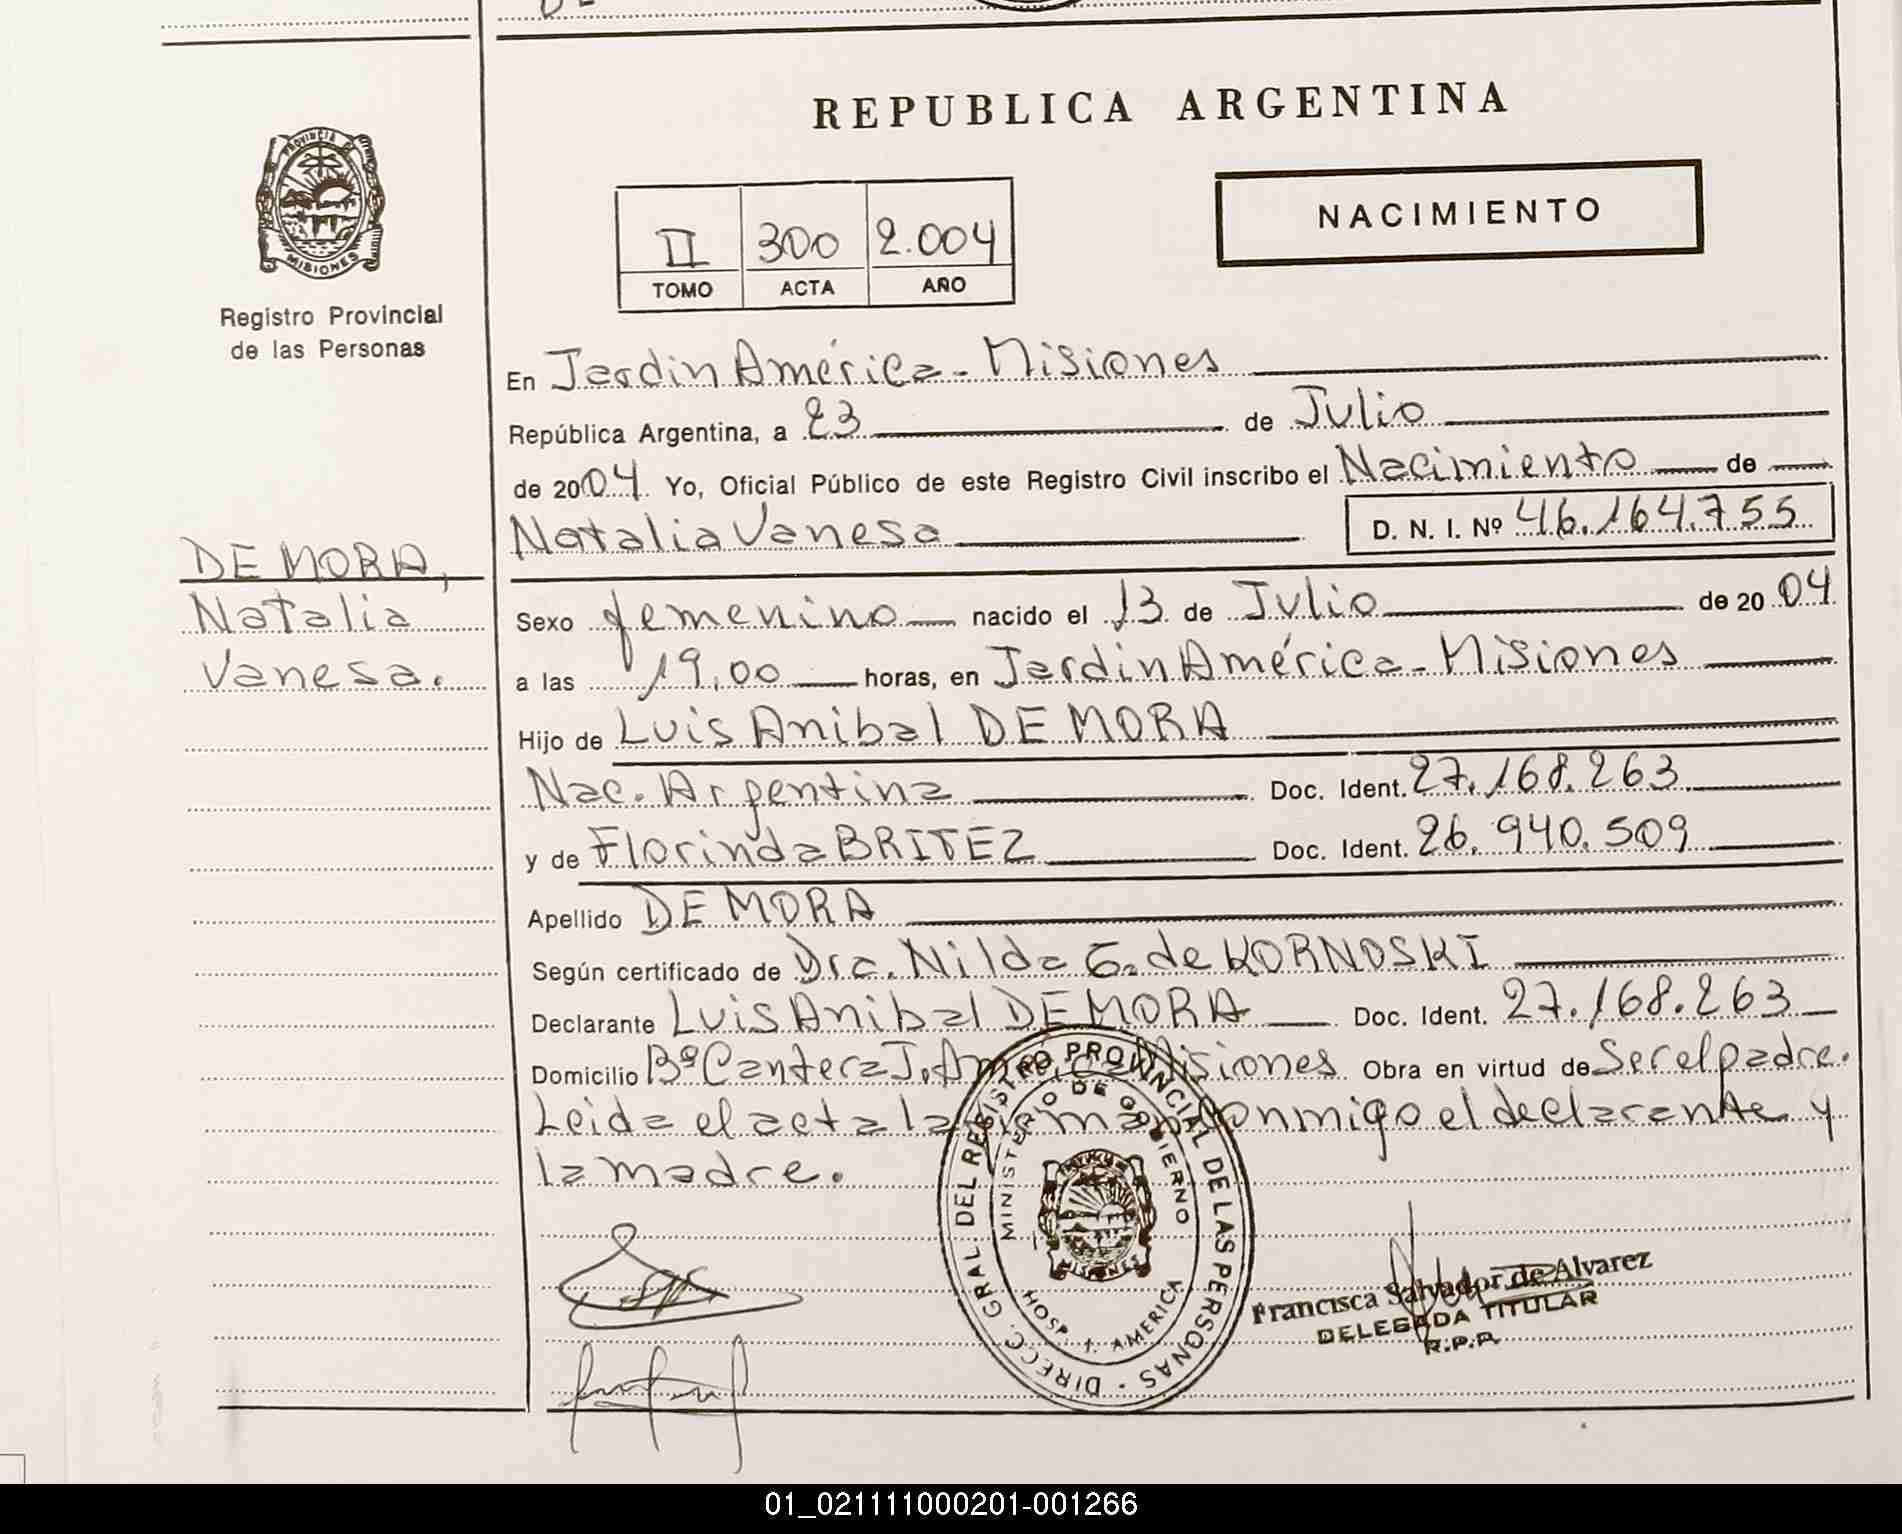 REPUBLICA ARGENTINA
PROVINCIA DE
MISIONES
Registro Provincial
de las Personas
NACIMIENTO
II 300 2.004
TOMO ACTA AÑO
En Jardin América - Misiones
República Argentina, a 23 de Julio
de 2004. Yo, Oficial Público de este Registro Civil inscribo el Nacimiento de
Natalia Vanesa D. N. I. Nº 46.164.755
DE MORA,
Natalia
Vanesa.
Sexo femenino nacido el 13 de Julio de 2004
a las 19,00 horas, en Jardin América - Misiones
Hijo de Luis Anibal DE MORA
Nac. Argentina Doc. Ident. 27.168.263
y de Florinda BRITEZ Doc. Ident. 26.940.509
Apellido DE MORA
Según certificado de Dra. Nilda G. de KORNOSKI
Declarante Luis Anibal DE MORA Doc. Ident. 27.168.263
Domicilio Bº Cantera J. América Misiones Obra en virtud de Ser el padre.
Leida el acta la firman conmigo el declarante y
la madre.
DIRECC. GRAL. DEL REGISTRO PROVINCIAL DE LAS PERSONAS
MINISTERIO DE GOBIERNO
MISIONES
HOSP. J. AMERICA
Francisca Salvador de Alvarez
DELEGADA TITULAR
R.P.P.
01_021111000201-001266